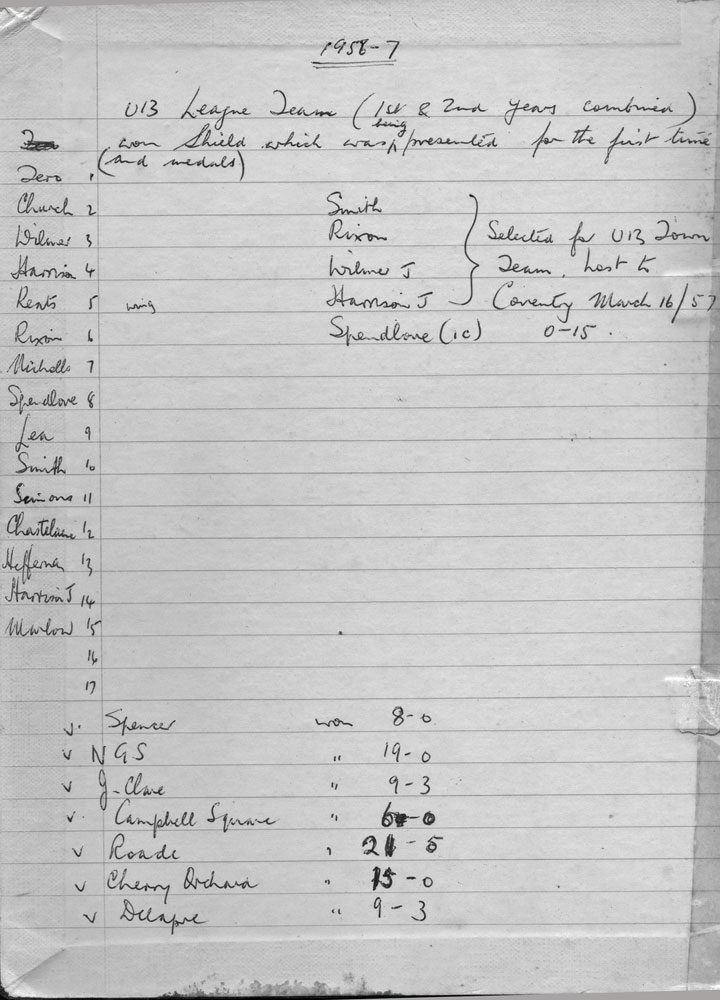 1956-7
U13 League Team (1st & 2nd years combined)
won Shield which was being presented for the first time
(and medals)
Zero 1
Church 2 Smith
Wilmer 3 Rixon Selected for U13 Town
Harrison 4 Wilmer J Team. Lost to
Keats 5 wing Harrison J Coventry March 16/57
Rixon 6 Spendlove (1c) 0-15.
Nicholls 7
Spendlove 8
Lea 9
Smith 10
Simons 11
Chastelaine 12
Heffernan 13
Harrison J 14
Marlow 15
16
17
v. Spencer won 8-0
v NGS " 19-0
v J. Clare " 9-3
v. Campbell Square " 6-0
v Roade " 21-5
v Cherry Orchard " 15-0
v Delapre " 9-3